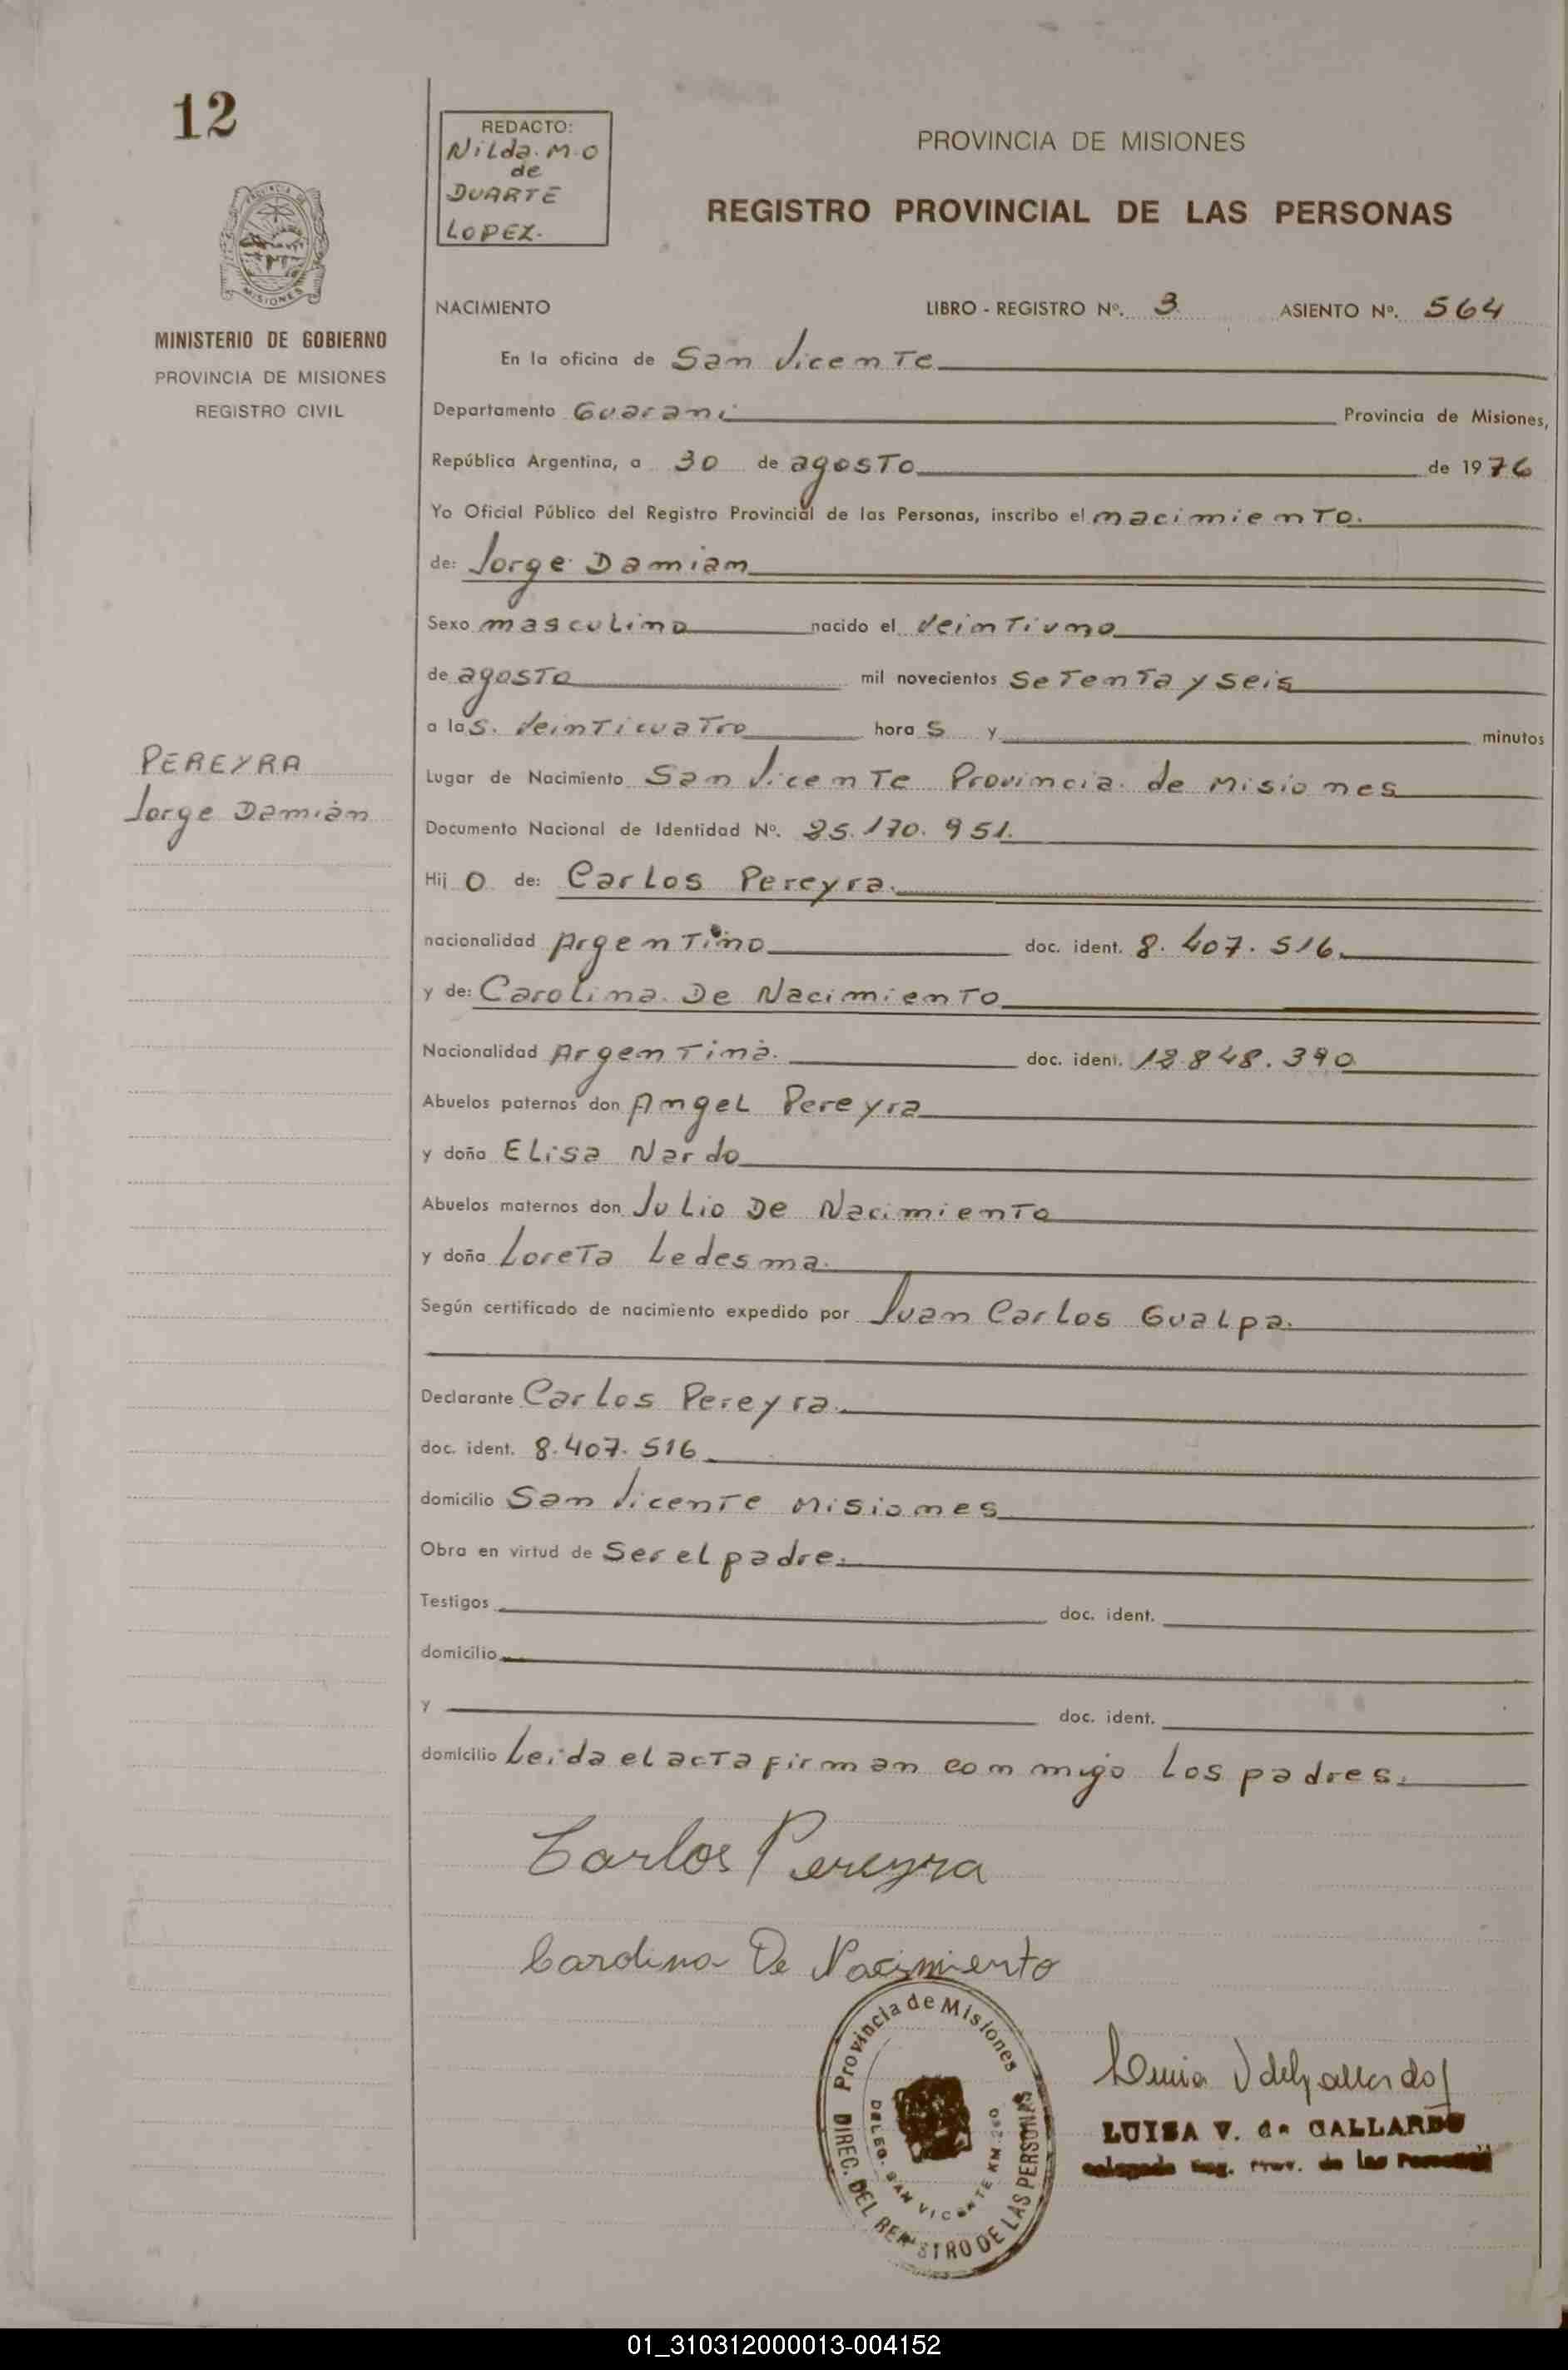 12
REDACTO:
Nilda. M. O
de
DUARTE
LOPEZ.
PROVINCIA DE MISIONES
REGISTRO PROVINCIAL DE LAS PERSONAS
PROVINCIA DE
MISIONES
MINISTERIO DE GOBIERNO
PROVINCIA DE MISIONES
REGISTRO CIVIL
NACIMIENTO LIBRO - REGISTRO Nº. 3 ASIENTO Nº. 564
En la oficina de San Vicente
Departamento Guarani Provincia de Misiones,
República Argentina, a 30 de agosto de 1976
Yo Oficial Público del Registro Provincial de las Personas, inscribo el nacimiento.
de: Jorge Damian
Sexo masculino nacido el veintiuno
de agosto mil novecientos setenta y seis
a las. veinticuatro horas y minutos
PEREYRA
Jorge Damián
Lugar de Nacimiento San Vicente Provincia de Misiones
Documento Nacional de Identidad Nº. 25.170.951.
Hijo de: Carlos Pereyra.
nacionalidad Argentino doc. ident. 8.407.516
y de: Carolina De Nacimiento
Nacionalidad Argentina. doc. ident. 12.848.390
Abuelos paternos don Angel Pereyra
y doña Elisa Nardo
Abuelos maternos don Julio De Nacimiento
y doña Loreta Ledesma.
Según certificado de nacimiento expedido por Juan Carlos Gualpa.
Declarante Carlos Pereyra.
doc. ident. 8.407.516
domicilio San Vicente Misiones
Obra en virtud de Ser el padre.
Testigos doc. ident.
domicilio
y doc. ident.
domicilio Leida el acta firman conmigo los padres.
Carlos Pereyra
Carolina De Nacimiento
Provincia de Misiones
DIREC. DEL REGISTRO DE LAS PERSONAS
DELEG. SAN VICENTE KM. 260
LUISA V. de GALLARDO
Delegada Reg. Prov. de las Personas
01_310312000013-004152